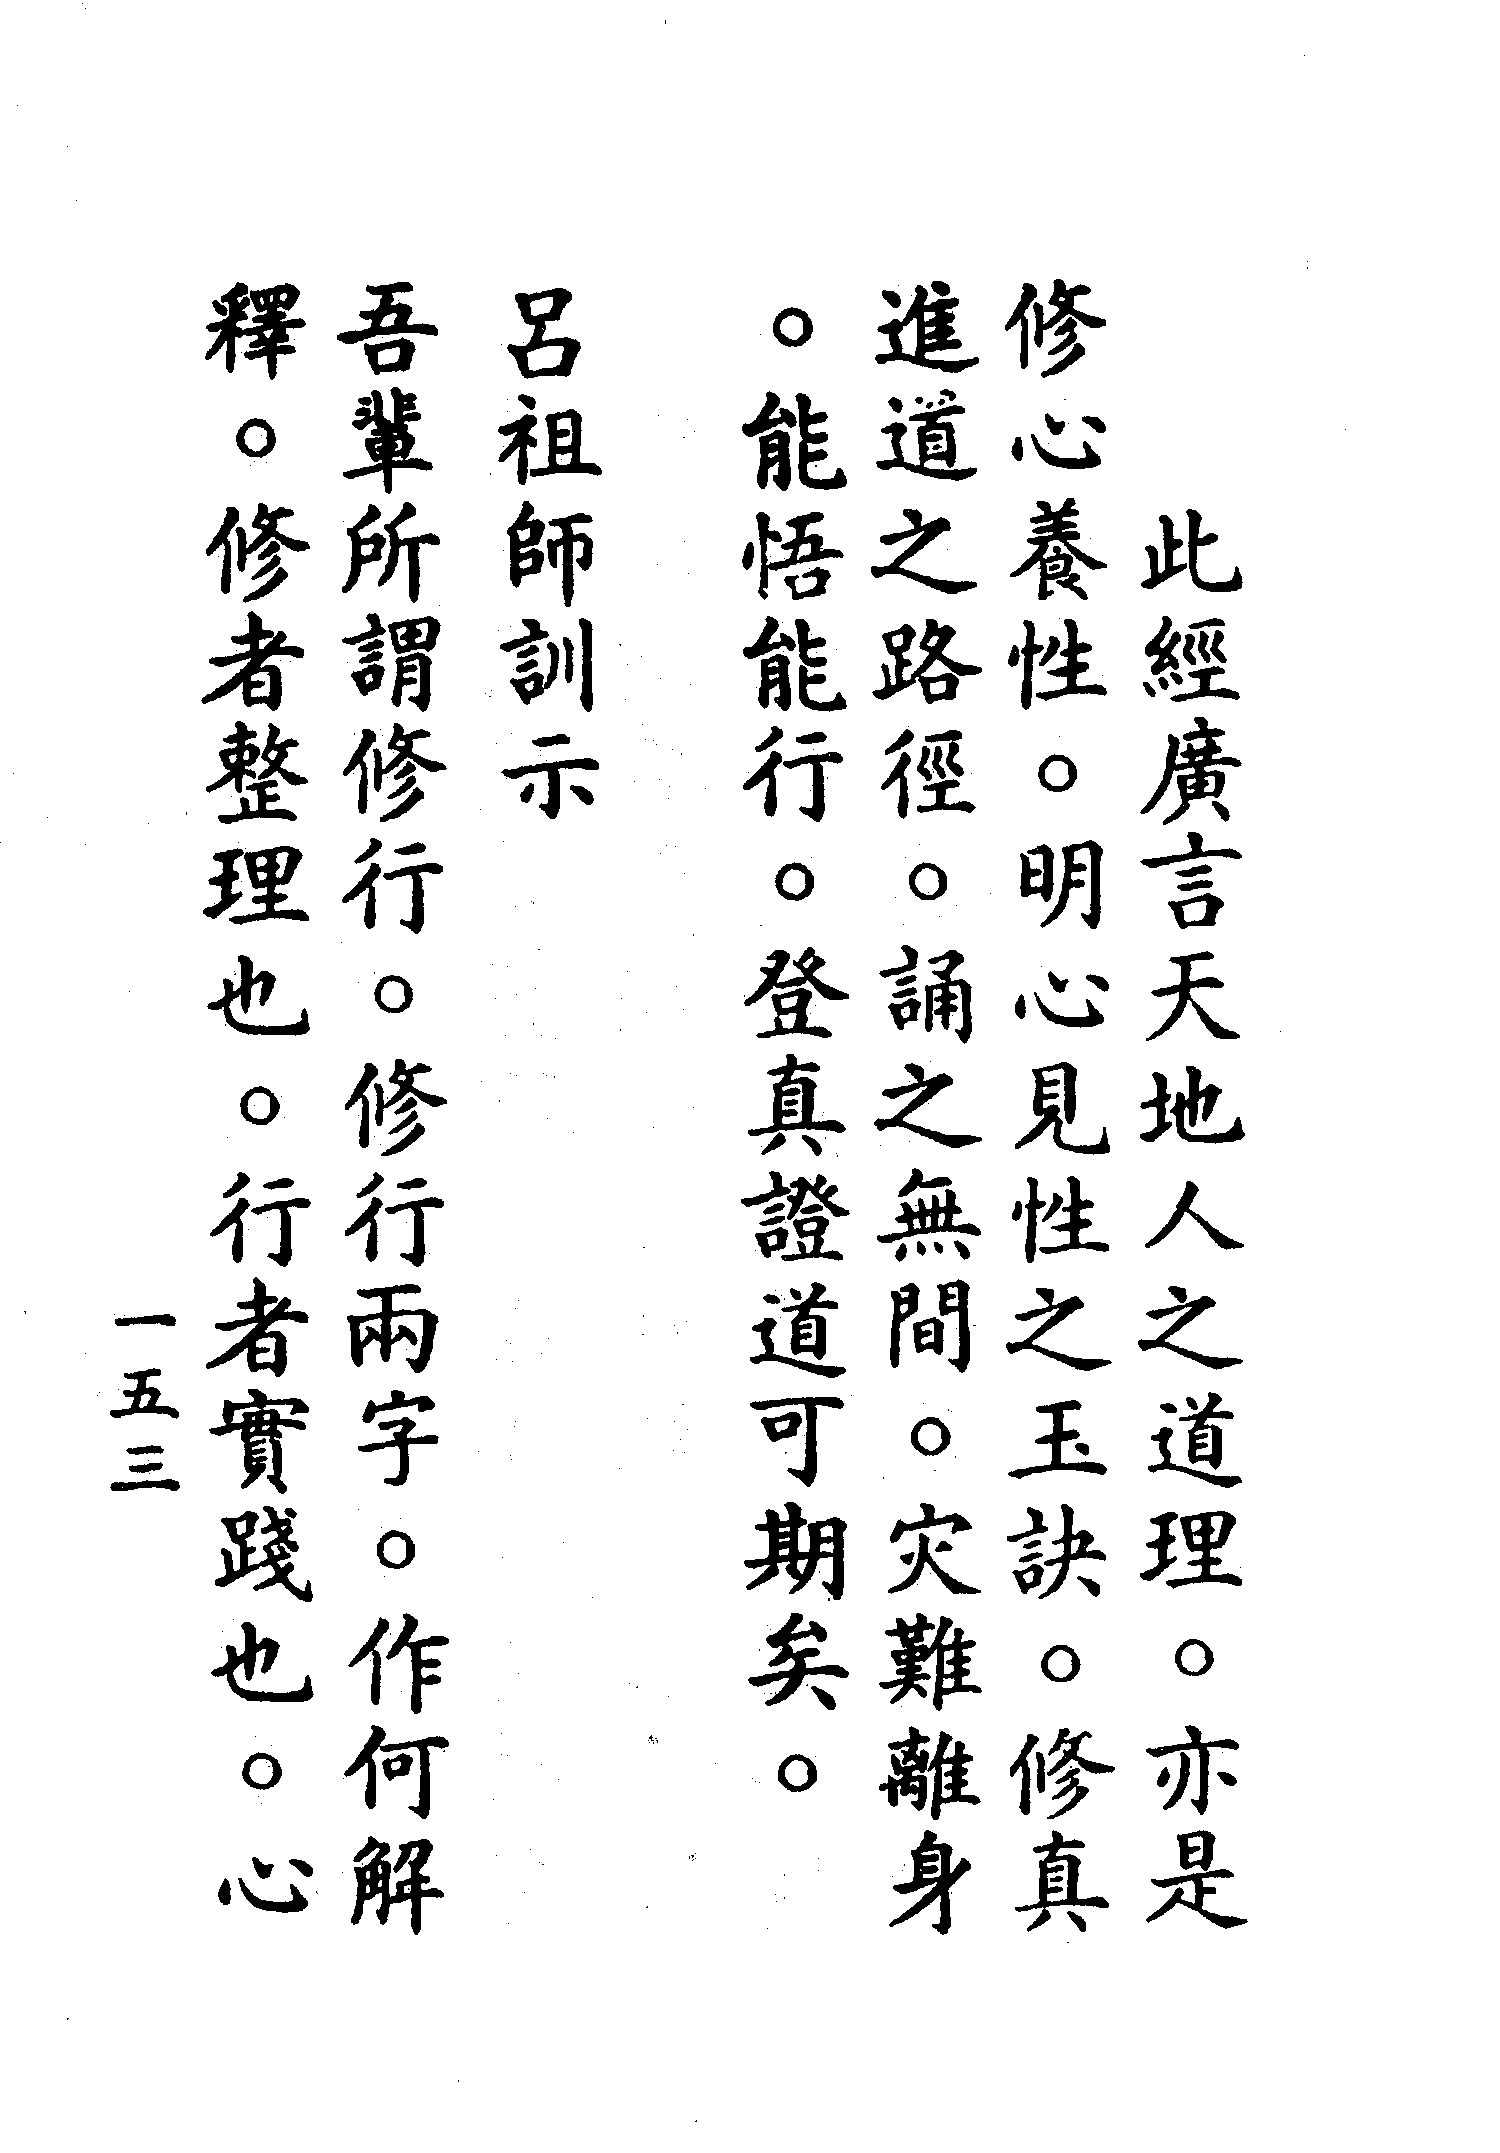 此經廣言天地人之道理。亦是
修心養性。明心見性之玉訣。修真
進道之路徑。誦之無間。災難離身
。能悟能行。登真證道可期矣。
呂祖師訓示
吾輩所謂修行。修行兩字。作何解
釋。修者整理也。行者實踐也。心
一五三